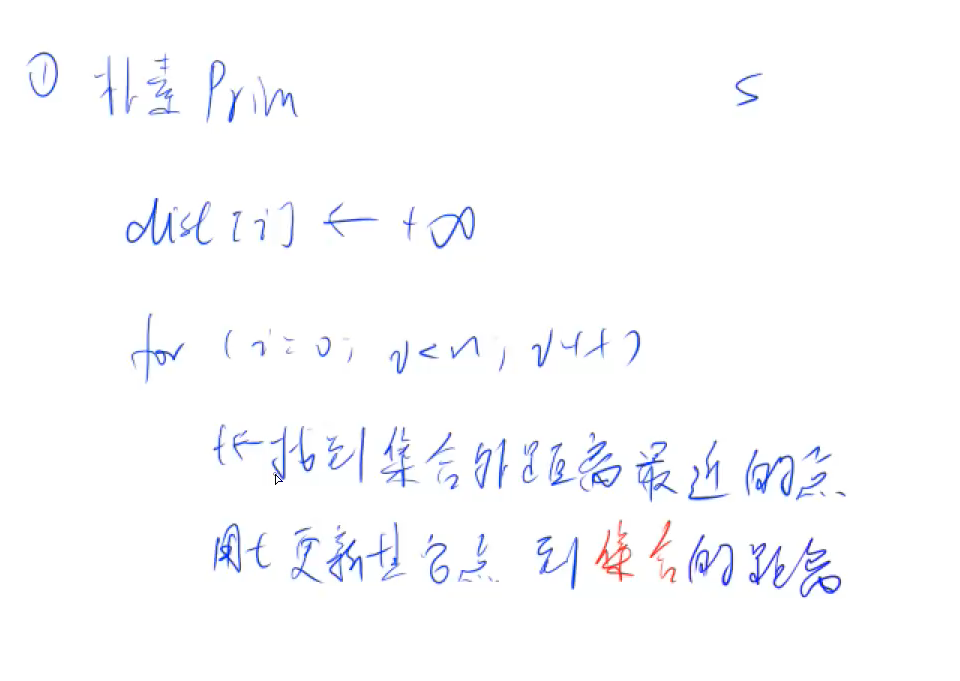 ① 朴素Prim S
dist[i] ← +∞
for (i=0; i<n; i++)
t←找到集合外距离最近的点
用t更新其它点 到集合的距离